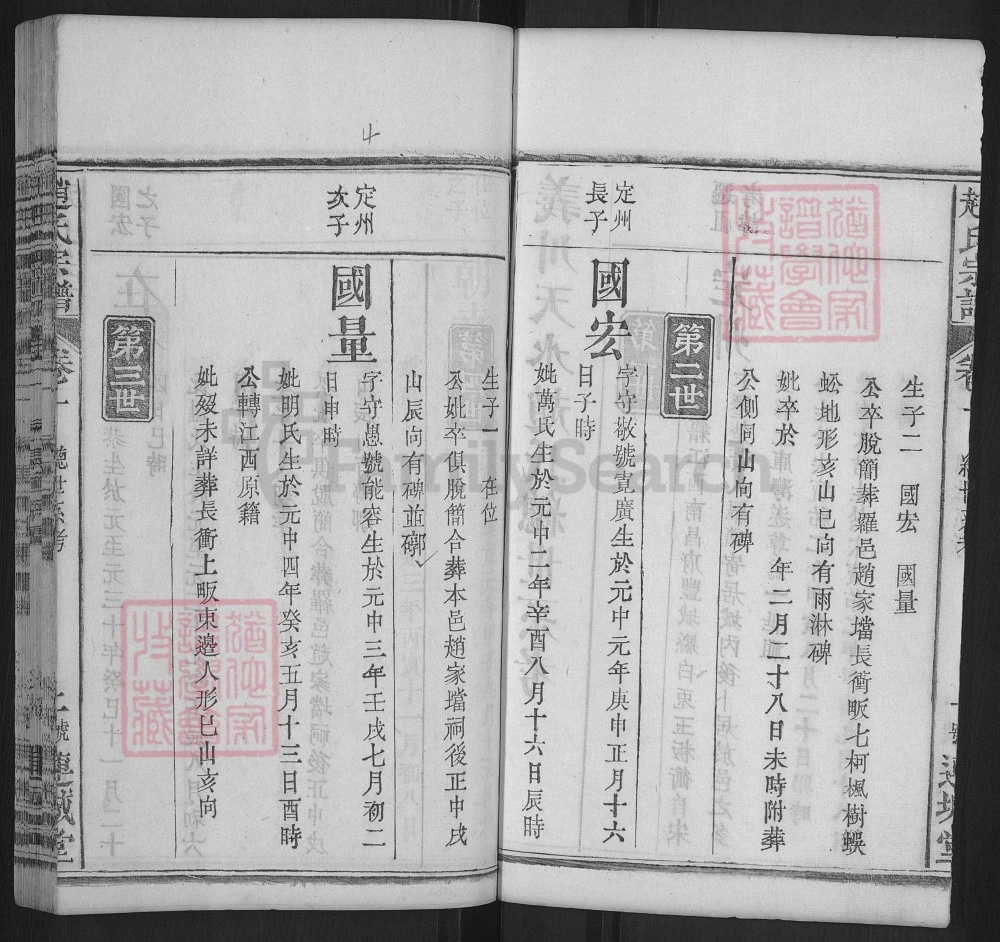 趙氏宗譜
生子二 國宏 國量
公卒脫簡葬羅邑趙家壋長衝畈七柯楓樹蜈
蚣地形亥山巳向有雨淋碑
妣卒於 年二月二十八日未時附葬
公側同山向有碑
第二世
定州
長子
國宏
字守敬號寬廣生於元中元年庚申正月十六
日子時
妣萬氏生於元中二年辛酉八月十六日辰時
生子一 在位
公妣卒俱脫簡合葬本邑趙家壋祠後正中戌
山辰向有碑並槨
定州
次子
國量
字守愚號能容生於元中三年壬戌七月初二
日申時
妣明氏生於元中四年癸亥五月十三日酉時
公轉江西原籍
妣歿未詳葬長衝上畈東邊人形巳山亥向
第三世
趙氏宗譜
卷一
總世系考
號
連城堂
FamilySearch